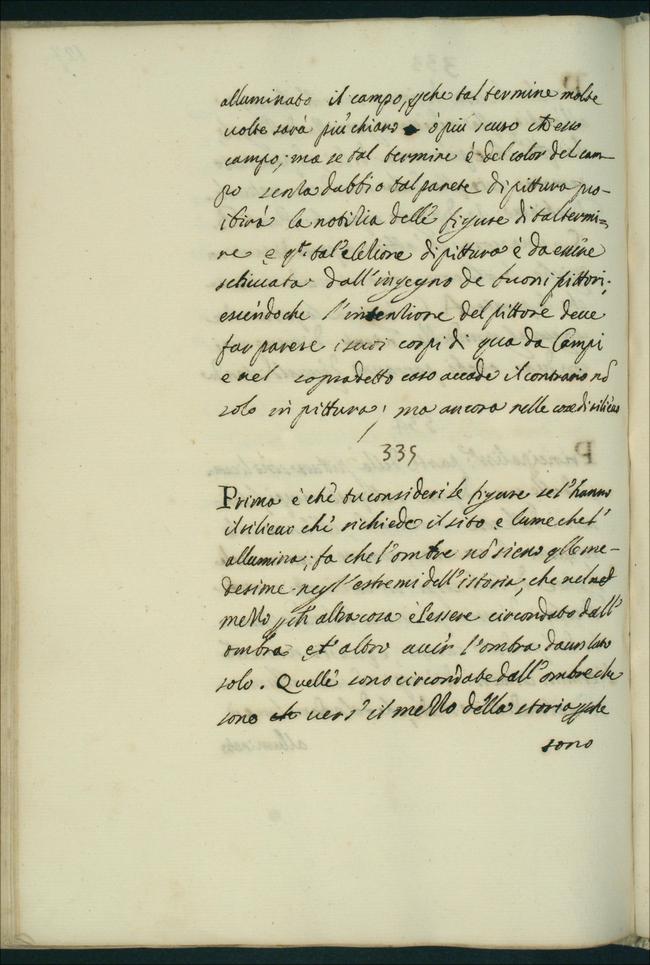 alluminato il campo, pche tal termine molte
uolte sarà più chiaro ò più scuro ch esso
campo; ma se tal termine è del color del cam-
po senza dubbio tal parete di pittura pro-
ibirà la notitia delle figure di tal termi=
ne e qta tal' eletione di pittura è da essere
schiuata dall' ingegno de buoni pittori;
essendoche l' intentione del pittore deue
far parere i suoi corpi di qua da Campi
e nel sopradetto caso accade il contrario nō
solo in pittura; ma ancora nelle cose di rilieuo
335
Prima è chè tu consideri le figure se l' hanno
il rilieuo chè richiede il sito e lume che l'
allumina; fa che l' ombre nō sieno qlle me-
desime negl' estremi dell' istoria, che nel
mezzo pch altra cosa è l' essere circondato dall'
ombra et altro auèr l' ombra da un lato
solo. Quelle sono circondate dall' ombre che
sono uers' il mezzo della storia pche
sono